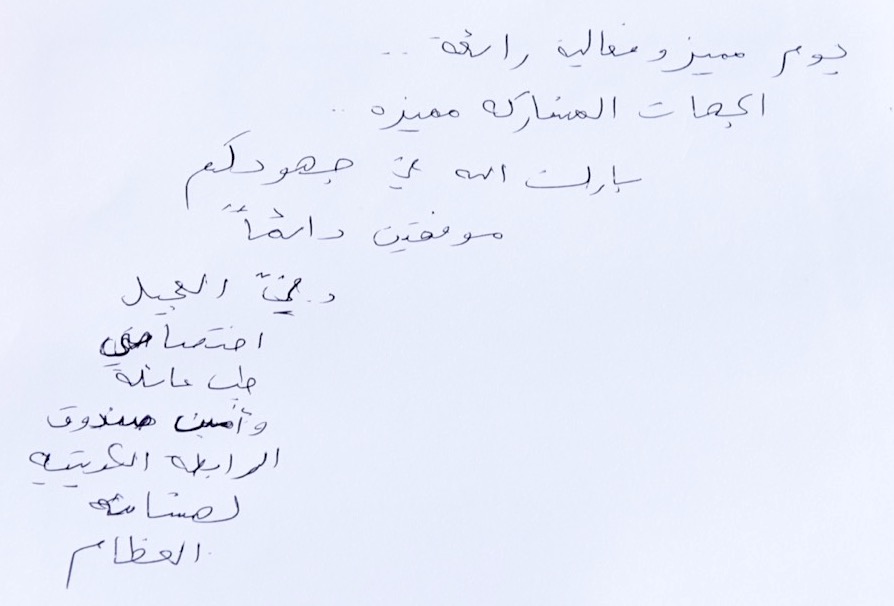 يوم مميز وفعالية رائعة ..
الجهات المشاركه مميزه ..
بارك الله في جهودكم
موفقين دائماً
د. العجيل
اختصاصي
طب عائلة
وأمين صندوق
الرابطه الكويتيه
لهشاشه
العظام